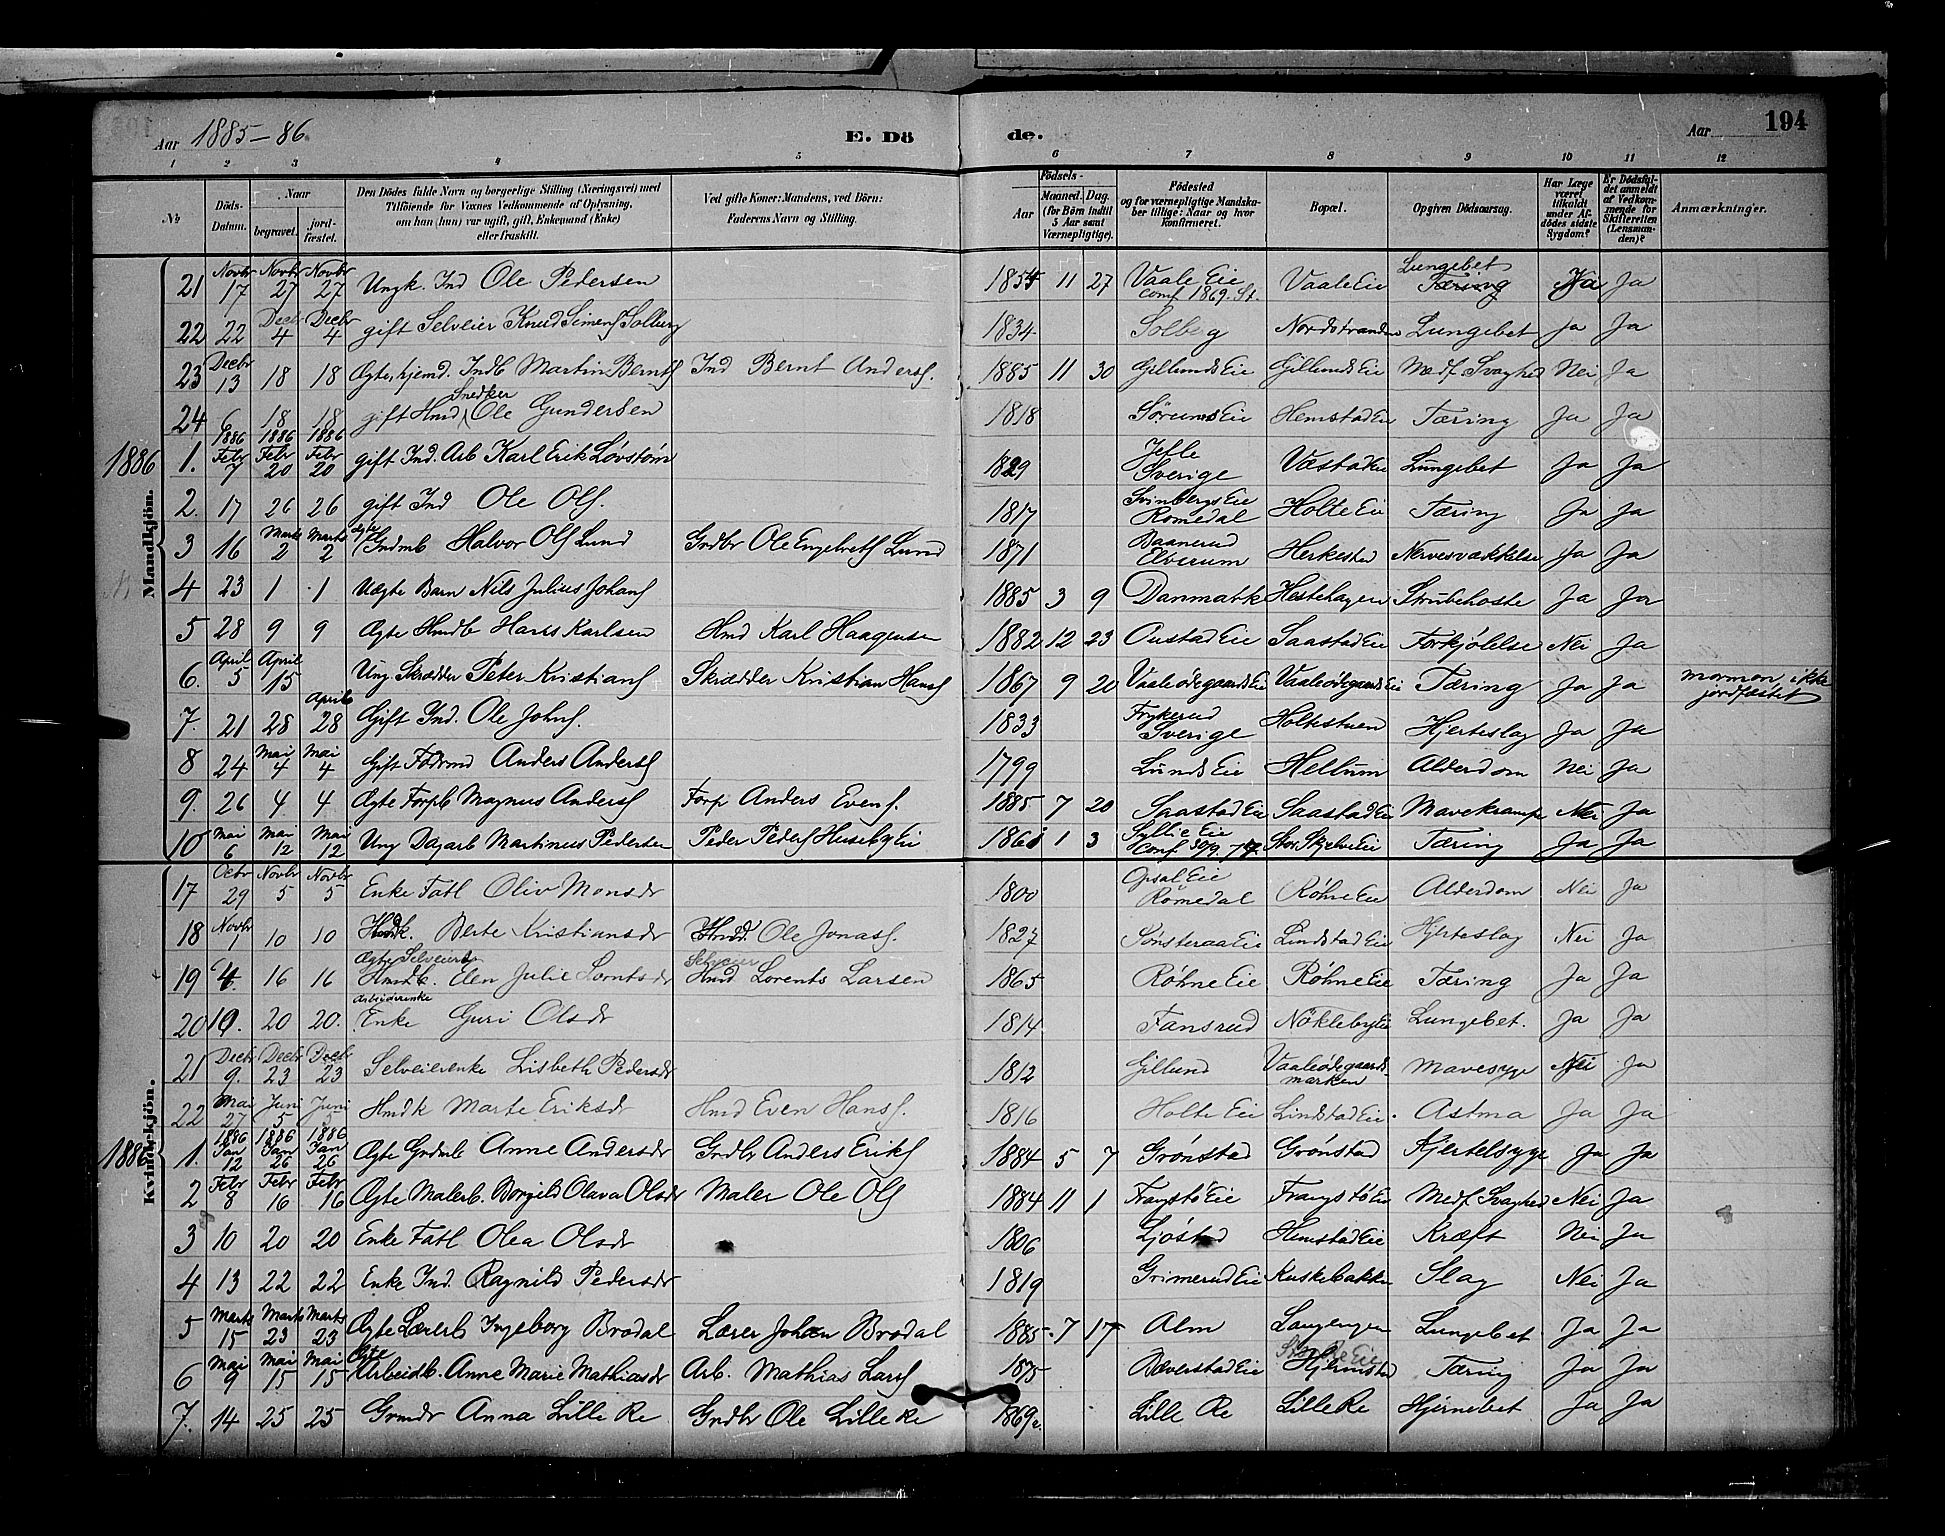 Aar 1885-86. E. Dö
de. Aar 194
1 2 3 4 5 6 7 8 9 10 11 12
No
Döds-Datum.
Naar
begravet.
jord-fæstet.
Den Dödes fulde Navn og borgerlige Stilling (Næringsvei) med
Tilföiende for Voxnes Vedkommende af Oplysning,
om han (hun) var ugift, gift, Enkemand (Enke)
eller fraskilt.
Ved gifte Koner: Mandens, ved Börn:
Faderens Navn og Stilling.
Födsels-
Aar
Maaned. Dag.
(for Börn indtil
5 Aar samt
Værnepligtige).
Födested
og for værnepligtige Mandska-
ber tillige: Naar og hvor
konfirmeret.
Bopæl.
Opgiven Dödsaarsag.
Har Læge
været
tilkaldt
under Af-
dödes sidste
Sygdom?
Er Dödsfal-
det anmeldt
af Vedkom-
mende for
Skifteretten
(Lensman-
den)?
Anmærkninger.
Mandkjön.
21 Novbr 17 Novbr 27 Novbr 27 Ungk. Ind Ole Pedersen 1854 11 27 Vaale Eie conf 1869. St. Vaale Eie Lungebet Tæring Ja Ja
22 22 Decbr 4 Decbr 4 gift Selveier Knud Simens Solberg 1834 Solberg Nordstranden Lungebet Ja Ja
23 Decbr 13 18 18 Ægte, hjemd. Indb Martin Bernts Ind Bernt Anders. 1885 11 30 Gillunds Eie Gillunds Eie Medf. Svaghed Nei Ja
24 6 18 18 gift Hmd, Snedker Ole Gundersen 1818 Sørums Eie Hemstad Ei Tæring Ja Ja
1886 1. 1886 Febr 7 1886 Febr 20 1886 Febr 20 gift Ind. Arb Karl Erik Løvstøm 1829 Jefle Sverige Væstad Ei Lungebet Ja Ja
2. 17 26 26 gift Ind Ole Ols. 1817 Svinbergs Eie Romedal Holte Eie Tæring Ja Ja
3 16 Marts 2 Marts 2 Ægte Grdmb Halvor Ols Lund Grdbr Ole Engelvets Lund 1871 Baanerud Elverum Herkestad Nervesvækkelse Ja Ja
4 23 1 1 Uægte Barn Nils Julius Johans 1885 3 9 Danmark Hestehagen Strubehoste Ja Ja
5 28 9 9 Ægte Hmdb Hans Karlsen Hmd Karl Haagensen 1882 12 23 Onstad Eie Saastad Eie Forkjølelse Nei Ja
6. April 5 April 15 Ung Skrædder Peter Kristians Skrædder Kristian Hans 1867 9 20 Vaaleødegaards Ei Vaaleødegaards Ei Tæring Ja Ja mormon, ikke jordfæstet
7. 21 28 April 28 Gift Ind. Ole Johs. 1833 Frykerud Sverige Holtestuen Hjerteslag Ja Ja
8 24 Mai 4 Mai 4 Gift Fødrmd Anders Anders 1799 Lunds Eie Hellum Alderdom Nei Ja
9. 26 4 4 Ægte Forpb Magnus Anders Forp Anders Evens. 1885 7 20 Saastad Eie Saastad Eie Mavekrampe Nei Ja
10 Mai 6 Mai 12 Mai 12 Ung Dagarb Martinus Pedersen Peder Peders Huseby Ei 1861 1 3 Syllie Eie Conf 30/9. 77. Stor Skjelve Eie Tæring Ja Ja
Kvindekjön.
17 Octbr 29 Novbr 5 Novbr 5 Enke Fatl Oliv Monsdr 1800 Opsal Eie Romedal Røhne Eie Alderdom Nei Ja
18 Novbr 1 10 10 Hmdk. Berte Kristiansdr Hmd. Ole Jonas. 1827 Sønsteraa Eie Lindstad Eie Hjerteslag Nei Ja
19 4 16 16 Ægte Selveierd Hmdb. Elen Julie Lorntsdr Selveier Hmd Lorents Larsen 1865 Røhne Eie Røhne Eie Tæring Ja Ja
20 19. 20 20. Arbeiderenke Enke Guri Olsdr 1814 Fansrud Nøkleby Ei Lungebet. Ja Ja
21 Decbr 9. Decbr 23 Decbr 23 Selveierenke Lisbeth Pedersdr 1812 Gillund Vaaleødegaards-marken Mavesyge Nei Ja
22 Mai 27 Juni 5 Juni 5 Hmdk Marte Eriksdr Hmd Even Hans. 1816 Holte Eie Lindstad Eie. Astma Ja Ja
1886 1. 1886 Jan 12 1886 Jan 26 1886 Jan 26 Ægte Grdmb Anne Andersdr Grdbr Anders Eriks 1884 5 7 Grønstad Grønstad Kjertelsyge Ja Ja
2 Febr 8 Febr 16 Febr 16 Ægte Malerb. Borgild Olava Olsdr Maler Ole Ols 1884 11 1 Frangstø Eie Frangstø Eie Medf. Svaghed Nei Ja
3 10 20 20 Enke Fatl Olea Olsdr 1806 Ljøstad Hemstad Eie Kræft Nei Ja
4 13 22 22 Enke Ind. Ragnild Pedersdr 1819 Grimerud Eie Kuskebakken Slag Nei Ja
5 Marts 15 Marts 23 Marts 23 Ægte Lærerb Ingeborg Brodal Lærer Johan Brodal 1885. 7 17 Alm Langengen Lungebet Ja Ja
6 Mai 9 Mai 15 Mai 15 Ægte Arbeidb. Anne Marie Mathiasdr Arb. Mathias Lars 1875 Bæverstad Eie Hjelmstad Tæring Ja Ja
7. 14 25 25 Grmdr Anna Lille Re Grdbr Ole Lille Re 1869. Lille Re Lille Re Hjernebet Ja Ja